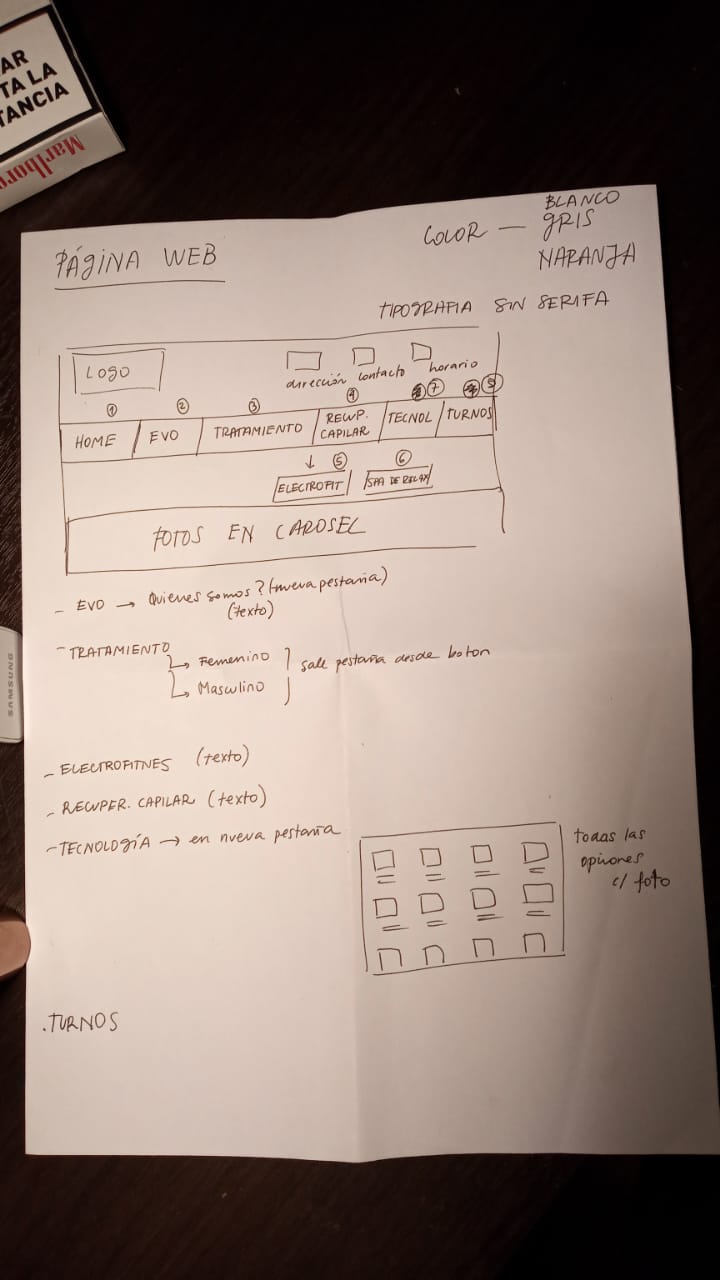 AR
TA LA
TANCIA
Marlboro
PÁGINA WEB
COLOR — BLANCO
GRIS
NARANJA
TIPOGRAFIA SIN SERIFA
LOGO
dirección contacto horario
① ② ③ ④ ⑦
HOME EVO TRATAMIENTO RECUP. CAPILAR TECNOL TURNOS
↓ ⑤ ⑥
ELECTROFIT SPA DE RELAX
FOTOS EN CAROSEL
- EVO → Quienes somos? (nueva pestaña)
(texto)
- TRATAMIENTO
→ Femenino
→ Masculino
sale pestaña desde boton
- ELECTROFITNES (texto)
- RECUPER. CAPILAR (texto)
- TECNOLOGÍA → en nueva pestaña
todas las
opciones
c/ foto
. TURNOS
SAMSUNG